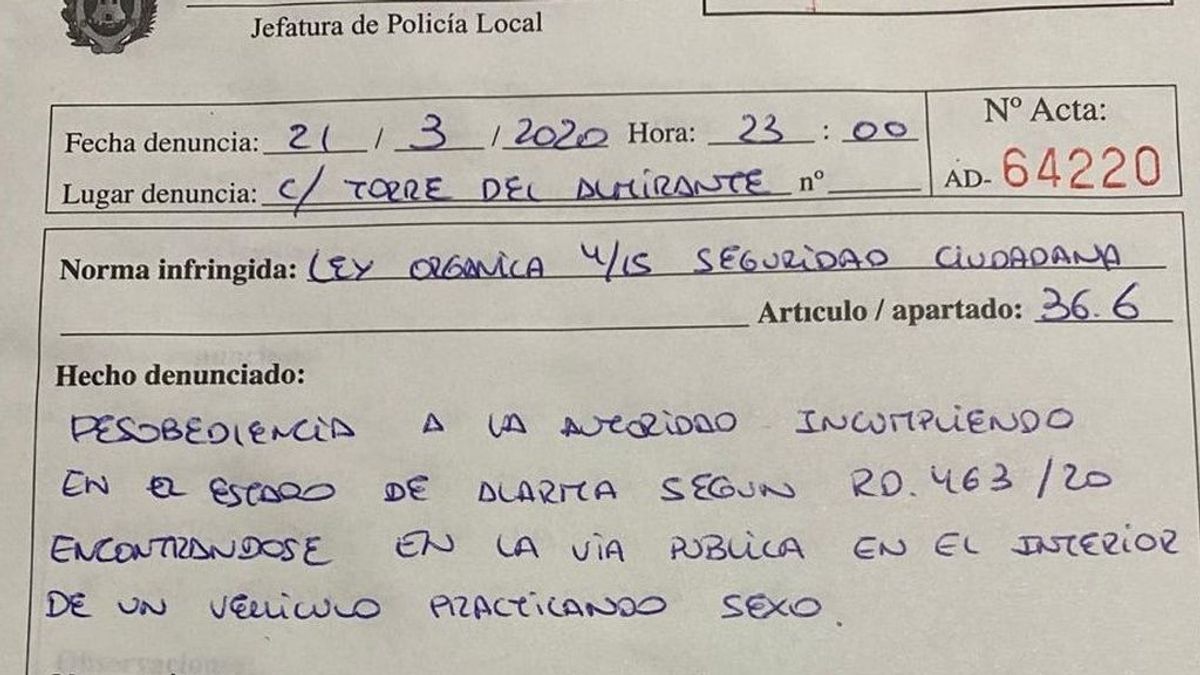 Jefatura de Policía Local
Fecha denuncia: 21 / 3 / 2020 Hora: 23 : 00
Lugar denuncia: C/ TORRE DEL ALMIRANTE nº
Nº Acta:
AD- 64220
Norma infringida: LEY ORGANICA 4/15 SEGURIDAD CIUDADANA
Artículo / apartado: 36.6
Hecho denunciado:
DESOBEDIENCIA A LA AUTORIDAD INCUMPLIENDO
EN EL ESTADO DE ALARMA SEGUN RD. 463/20
ENCONTRANDOSE EN LA VIA PUBLICA EN EL INTERIOR
DE UN VEHICULO PRACTICANDO SEXO.